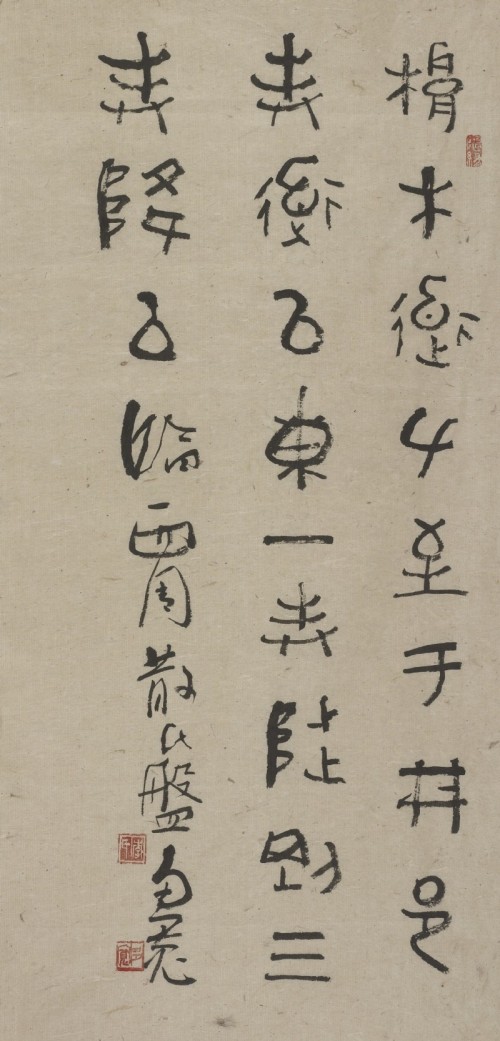 桹木道左至于井邑
封道以東一封陟剛三
封降以臨西周散氏盤